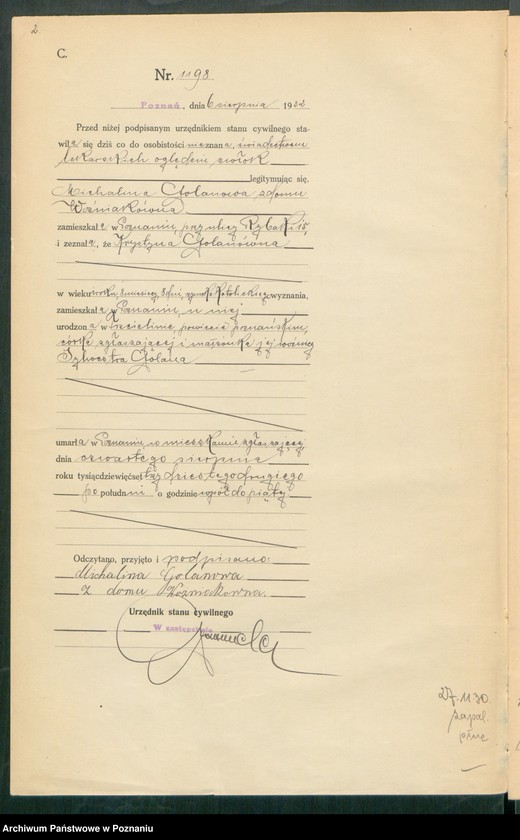 2
C.
Nr. 1198
Poznań, dnia 6 sierpnia 1932
Przed niżej podpisanym urzędnikiem stanu cywilnego sta-
wiła się dziś co do osobistości nieznana, świadectwem
lekarskich oględzin zwłok
legitymując się,
Michalina Golanowa z domu
Woźniakówna
zamieszkała w Poznaniu, przy ulicy Rybaki 15,
i zeznała, że Krystyna Golanówna
w wieku roku, 8 miesięcy, 8 dni, rzymsko katolickiego wyznania,
zamieszkała w Poznaniu, u niej
urodzona w powiecie poznańskim,
córka zgłaszającej i małżonka jej
Sylwestra Golana
umarła w Poznaniu, w mieszkaniu zgłaszającej
dnia czwartego sierpnia
roku tysiącdziewięćset trzydziestego drugiego
po południu o godzinie wpół do piątej
Odczytano, przyjęto i podpisano:
Michalina Golanowa
z domu Woźniakówna.
Urzędnik stanu cywilnego
W zastępstwie
27.11 30
zapal.
płuc
Archiwum Państwowe w Poznaniu